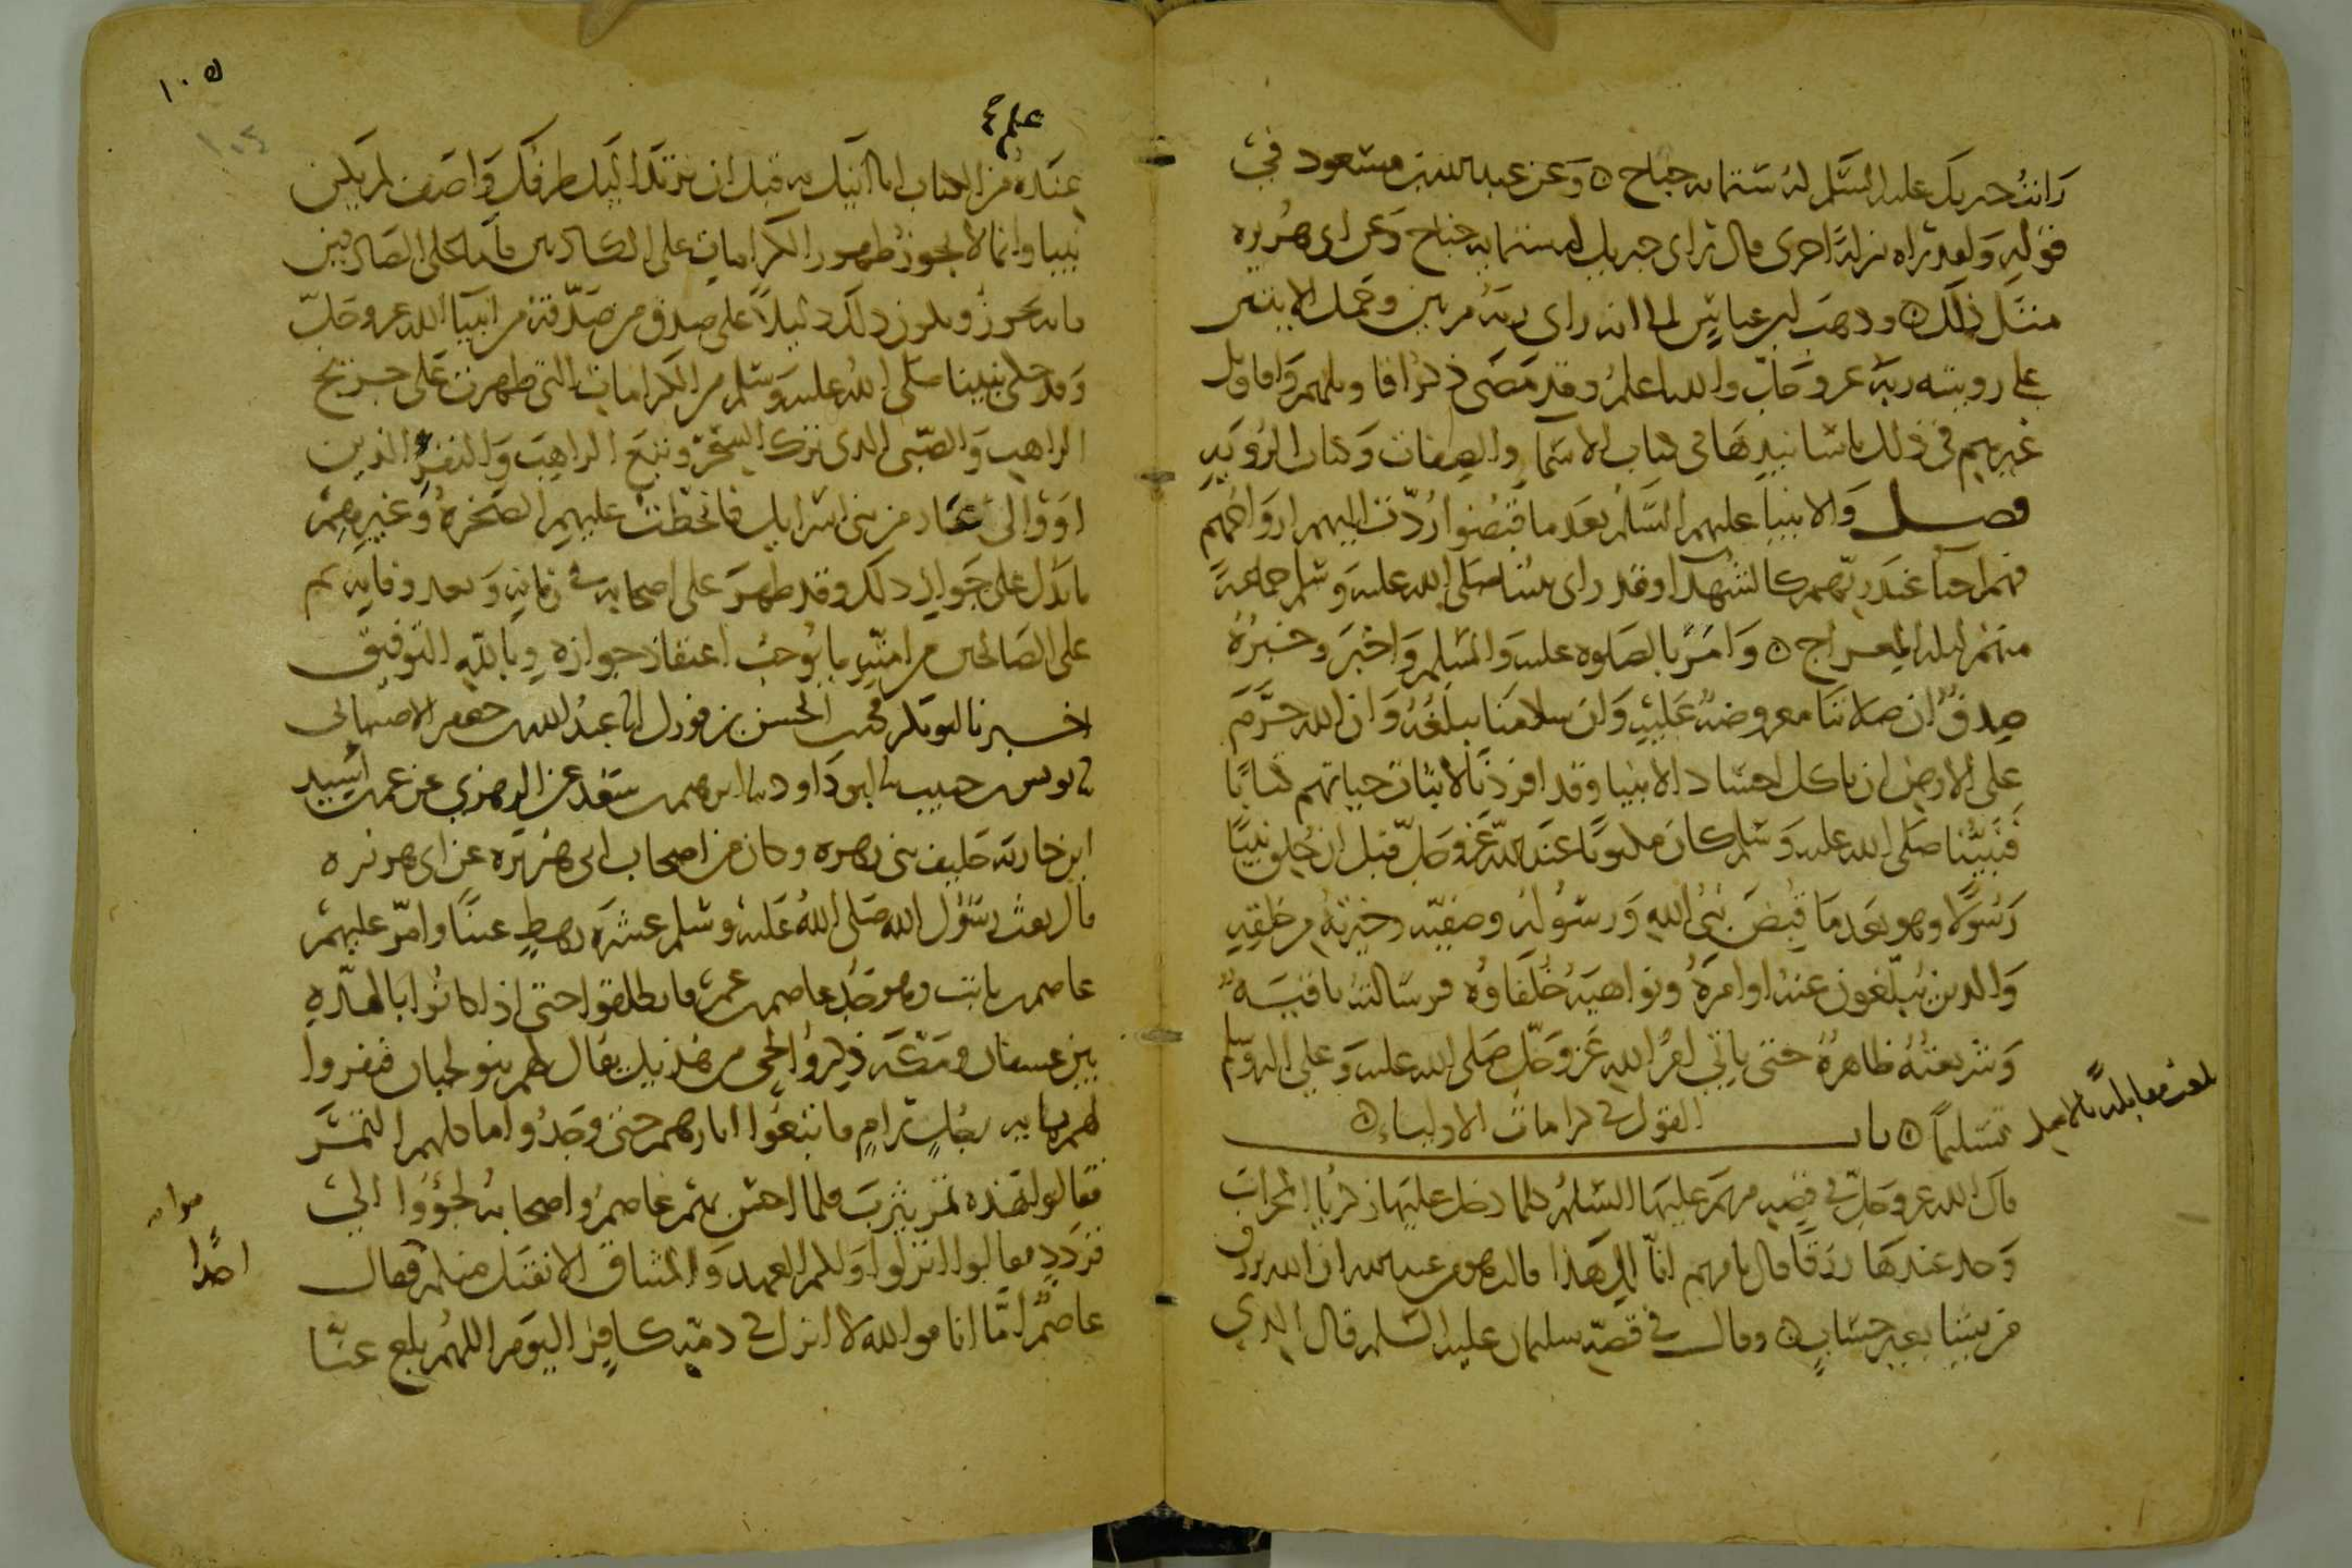 رايت جبريل عليه السلم له ستمايه جناح ۞ وعن عبد الله بن مسعود في
قوله ولقد راه نزلة اخرى قال راى جبريل له ستمايه جناح وعن ابي هريره
مثل ذلك ۞ وذهب ابن عباس الى انه راى ربه مرتين وحمل الايتين
على رويته ربه عز وجل والله اعلم وقد مضى ذكر اقاويلهم واقاويل
غيرهم في ذلك باسانيدها في كتاب الاسما والصفات وكتاب الرويه
فصل والانبيا عليهم السلم بعد ما قبضوا ردت اليهم ارواحهم
فهم احيا عند ربهم كالشهدا وقد راى نبينا صلى الله عليه وسلم جماعة
منهم ليله المعراج ۞ وامر بالصلوه عليه والسلم واخبر وخبره
صدق ان صلاتنا معروضة عليه وان سلامنا يبلغه وان الله حرم
على الارض ان تاكل اجساد الانبيا وقد افردنا لاثبات حياتهم كتابا
فنبينا صلى الله عليه وسلم كان مكتوبا عند الله عز وجل قبل ان يخلق نبيا
رسولا وهو بعد ما قبض نبي الله ورسوله وصفيه وخيرته من خلقه
والذين يبلغون عنه اوامره ونواهيه خلفاوه فرسالته باقيه
وشريعته ظاهرة حتى ياتي امر الله عز وجل صلى الله عليه وعلى اله وسلم
تسليما ۞ باب القول في كرامات الاولياء ۞
بلغت مقابلة بالاصل
قال الله عز وجل في قصه مريم عليها السلم كلما دخل عليها زكريا المحراب
وجد عندها رزقا قال يا مريم انى لك هذا قالت هو من عند الله ان الله يرزق
من يشا بغير حساب ۞ وقال في قصة سليمان عليه السلم قال الذي
١٠٥
علم
عنده من الكتاب انا اتيك به قبل ان يرتد اليك طرفك واصف لم يكن
نبيا وانما لا يجوز ظهور الكرامات على الكاذبين فاما على الصادقين
فانه يجوز ويكون ذلك دليلا على صدق من صدقه من انبيا الله عز وجل
وقد حكى نبينا صلى الله عليه وسلم من الكرامات التي ظهرت على جريج
الراهب والصبي الذي ترك السحر وتبع الراهب والنفر الذين
اووا الى غار من بني اسرايل فانحطت عليهم الصخرة وغيرهم
ما يدل على جواز ذلك وقد ظهر على اصحابه في زمانه وبعد وفاته ثم
على الصالحين من امته ما يوجب اعتقاد جوازه وبالله التوفيق
اخبرنا ابو بكر محمد بن الحسن بن فورك انا عبد الله بن جعفر الاصبهاني
نا يونس بن حبيب نا ابو داود نا ابرهيم بن سعد عن الزهري عن عمر بن اسيد
ابن جاريه حليف بني زهره وكان من اصحاب ابي هريره عن ابي هريره
قال بعث رسول الله صلى الله عليه وسلم عشرة رهط عينا وامر عليهم
عاصم بن ثابت وهو جد عاصم بن عمر فانطلقوا حتى اذا كانوا بالهده
بين عسفان ومكه ذكروا لحي من هذيل يقال لهم بنو لحيان فنفروا
لهم بمايه رجل رام فاتبعوا اثارهم حتى وجدوا ماكلهم التمر
فقالوا هذه تمر يثرب فلما احس بهم عاصم واصحابه لجؤوا الى
فردد فقالوا انزلوا ولكم العهد والميثاق الا نقتل منكم فقال
احدا
عاصم اما انا فوالله لا انزل في ذمة كافر اليوم اللهم بلغ عنا